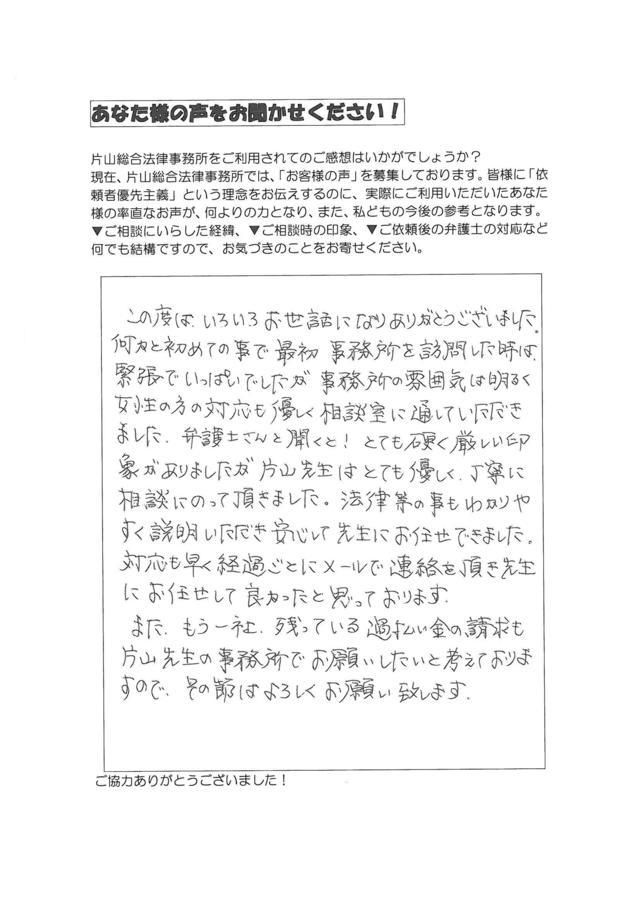 あなた様の声をお聞かせください！
片山総合法律事務所をご利用されてのご感想はいかがでしょうか？
現在、片山総合法律事務所では、「お客様の声」を募集しております。皆様に「依
頼者優先主義」という理念をお伝えするのに、実際にご利用いただいたあなた
様の率直なお声が、何よりの力となり、また、私どもの今後の参考となります。
▼ご相談にいらした経緯、▼ご相談時の印象、▼ご依頼後の弁護士の対応など
何でも結構ですので、お気づきのことをお寄せください。
この度は、いろいろお世話になりありがとうございました。
何かと初めての事で最初 事務所を訪問した時は、
緊張でいっぱいでしたが 事務所の雰囲気は明るく
女性の方の対応も優しく 相談室に通していただき
ました。弁護士さんと聞くと！とても硬く厳しい印
象がありましたが 片山先生はとても優しく、丁寧に
相談にのって頂きました。法律等の事もわかりや
すく説明いただき安心して先生にお任せできました。
対応も早く経過ごとにメールで連絡を頂き先生
にお任せして良かったと思っております。
また、もう一社、残っている過払い金の請求も
片山先生の事務所でお願いしたいと考えておりま
すので、その節はよろしくお願い致します。
ご協力ありがとうございました！